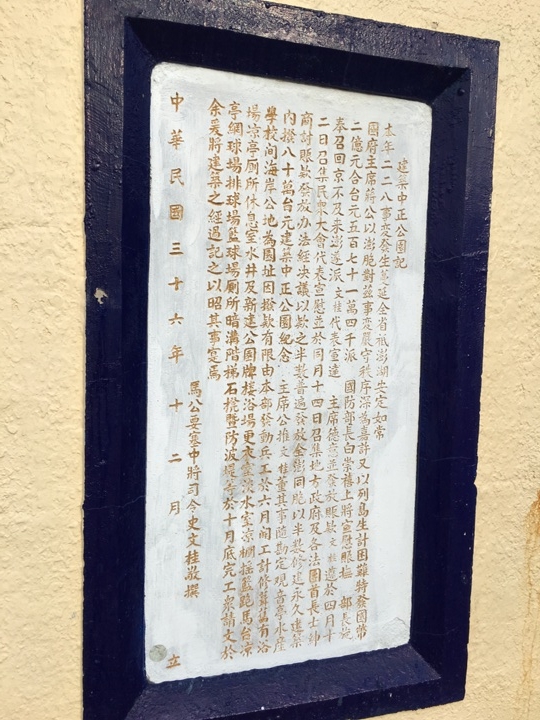 建築中正公園記
本年二二八事變發生蔓延全省祗澎湖安定如常
國府主席蔣公以澎胞對茲事變嚴守秩序深為嘉許又以列島生計困難特發國幣
二億元合台元五百七十一萬四千派 國防部長白崇禧上將宣慰賑撫 部長旋
奉召回京不及來澎遂派文桂代表宣達 主席德意並發放賑款文桂遵於四月十
二日召集民眾大會代表宣慰並於同月十四日召集地方政府及各法團首長士紳
商討賑款發放办法經決議以款之半數普遍發放全澎同胞以半數修建永久建築
內撥八十萬台元建築中正公園紀念 主席公推文桂董其事隨勘定觀音亭水產
學校间海岸公地為園址因撥款有限由本部發動兵工於六月间工計修葺舊有浴
場凉亭廁所休息室水井及新建公園牌樓浴場更衣室淡水室凉棚搖籃跑馬台凉
亭網球場排球場籃球場廁所暗溝階梯石櫈暨防波堤等於十月底完工眾請文於
余爰將建築之經過記之以昭其事寔焉
馬公要塞中將司令史文桂敬撰
中華民國三十六年十二月 立